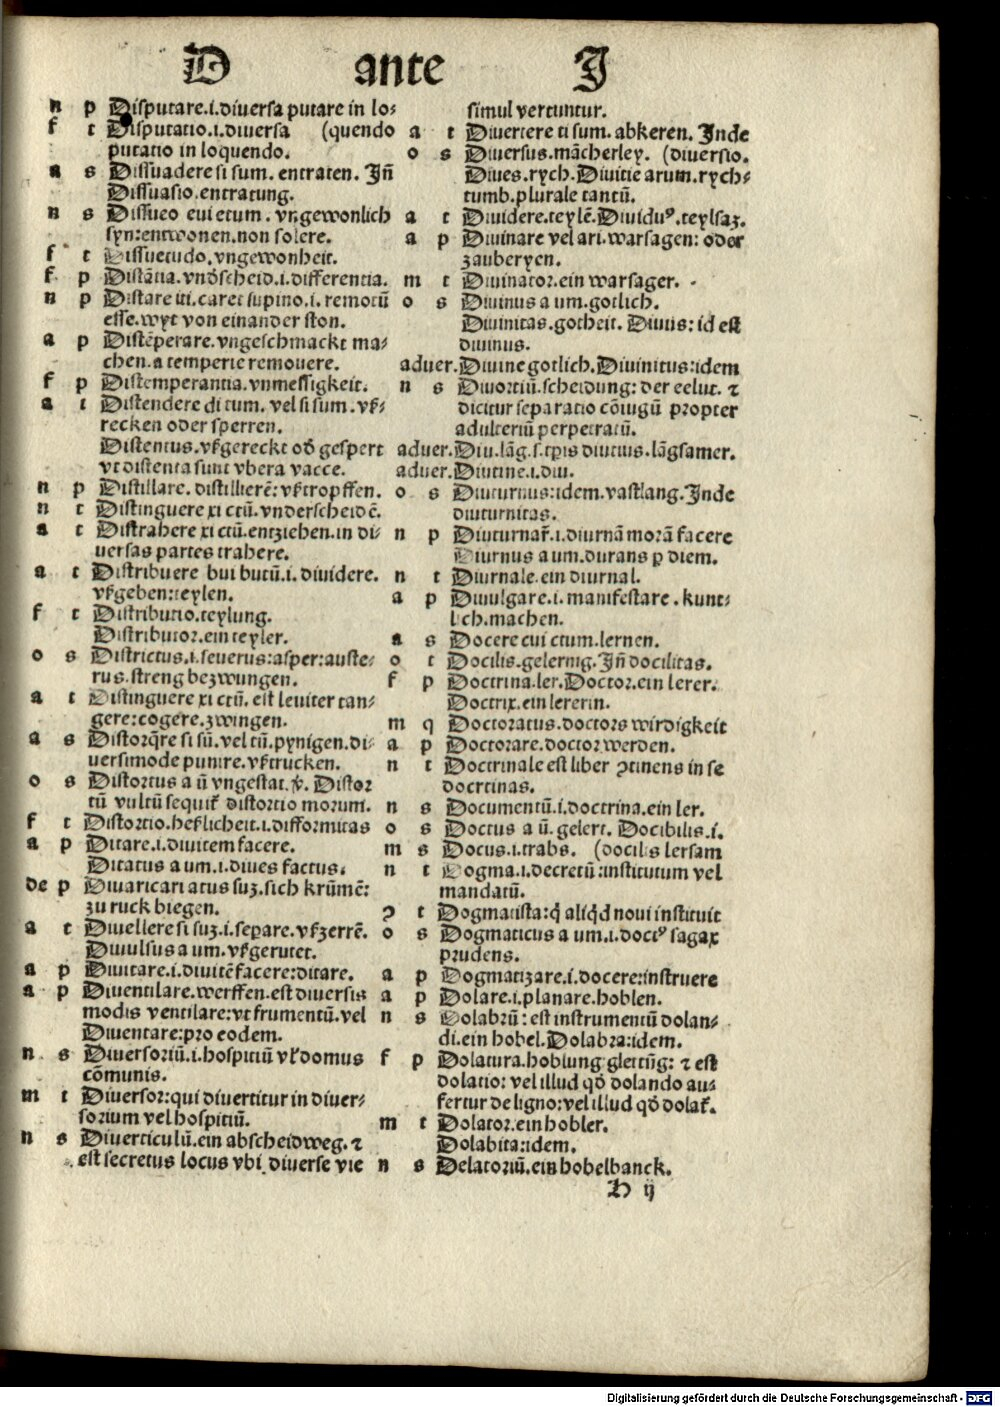 D ante I
n p Disputare.i.diuersa putare in lo⸗
f t Disputatio.i.diuersa (quendo
putatio in loquendo.
a s Dissuadere si sum. entraten. Jñ
Dissuasio.entratung.
n s Dissueo eui etum. vngewonlich
syn:entwonen.non solere.
f t Dissuetudo.vngewonheit.
f p Distãtia.vnd̃scheid.i.differentia.
n p Distare iti.caret supino.i.remotũ
esse.wyt von einander ston.
a p Distẽperare.vngeschmackt ma⸗
chen.a temperie remouere.
f p Distemperantia.vnmessigkeit.
a t Distendere di tum. vel si sum.vß⸗
recken oder sperren.
Distentus.vßgereckt od̃ gespert
vt distenta sunt vbera vacce.
n p Distillare. distillierẽ:vßtropffen.
n t Distinguere xi ctũ.vnderscheidẽ.
a t Distrahere xi ctũ.entziehen.in di⸗
uersas partes trahere.
a t Distribuere bui butũ.i.diuidere.
vßgeben:teylen.
f t Distributio.teylung.
Distributor.ein teyler.
o s Districtus.i.seuerus:asper:auste⸗
rus.streng bezwungen.
a t Distinguere xi ctũ. est leuiter tan⸗
gere:cogere.zwingen.
a s Distorq̃re si sũ.vel tũ.pynigen.di⸗
uersimode punire.vßtrucken.
o s Distortus a ũ vngestat. Distor
tũ vultũ sequit᷑ distortio morum.
f t Distortio.heßlicheit.i.difformitas
a p Ditare.i.diuitem facere.
Ditatus a um.i.diues factus.
de p Diuaricari atus suꝫ.sich krũmẽ:
zu ruck biegen.
a t Diuellere si suꝫ.i.separe.vßzerrẽ.
Diuulsus a um.vßgerutet.
a p Diuitare.i.diuitẽ facere:ditare.
a p Diuentilare.werffen.est diuersis
modis ventilare:vt frumentũ.vel
Diuentare:pro eodem.
n s Diuersoriũ.i.hospitiũ vł domus
cõmunis.
m t Diuersor:qui diuertitur in diuer⸗
sorium vel hospitiũ.
n s Diuerticulũ.ein abscheidweg.⁊
est secretus locus vbi diuerse vie
simul vertuntur.
a t Diuertere ti sum. abkeren. Inde
o s Diuersus.mãcherley. (diuersio.
Diues.rych.Diuitie arum.rych⸗
tumb.plurale tantũ.
a t Diuidere.teylẽ.Diuiduꝰ.teylsaꝫ.
a p Diuinare vel ari.warsagen: oder
zauberyen.
m t Diuinator.ein warsager.
o s Diuinus a um.gotlich.
Diuinitas.gotheit. Diuus: id est
diuinus.
aduer.Diuine gotlich.Diuinitus:idem
n s Diuortiũ.scheidung: der eelut. ⁊
dicitur separatio cõiugũ propter
adulteriũ perpetratũ.
aduer.Diu.lãg.s.tꝑis diutius.lãgsamer.
aduer.Diutine.i.diu.
o s Diuturnus:idem.vast lang.Inde
diuturnitas.
n p Diuturnar̃.i.diurnã morã facere
Diurnus a um.durans ꝑ diem.
n t Diurnale.ein diurnal.
a p Diuulgare.i.manifestare.kunt⸗
lich.machen.
a s Docere cui ctum.lernen.
o t Docilis.gelernig.Jñ docilitas.
f p Doctrina.ler.Doctor.ein lerer.
Doctrix.ein lererin.
m q Doctoratus.doctors wirdigkeit
a p Doctorare.doctor werden.
n t Doctrinale est liber ꝯtinens in se
doctrinas.
n s Documentũ.i.doctrina.ein ler.
o s Doctus a ũ. gelert. Docibilis.i.
m s Docus.i.trabs. (docilis lersam
n t Dogma.i.decretũ:institutum vel
mandatũ.
ꝯ t Dogmatista:q̃ aliq̃d noui instituit
o s Dogmaticus a um.i.doctꝰ sagax
prudens.
a p Dogmatizare.i.docere:instruere
a p Dolare.i.planare.hoblen.
n s Dolabrũ: est instrumentũ dolan⸗
di.ein hobel.Dolabra:idem.
f p Dolatura.hoblung glettũg: ⁊ est
dolatio: vel illud qd̃ dolando au⸗
fertur de ligno:vel illud qd̃ dolat᷑.
m t Dolator.ein hobler.
Dolabita:idem.
n s Delatoriũ.ein hobelbanck.
D ij
Digitalisierung gefördert durch die Deutsche Forschungsgemeinschaft - DFG